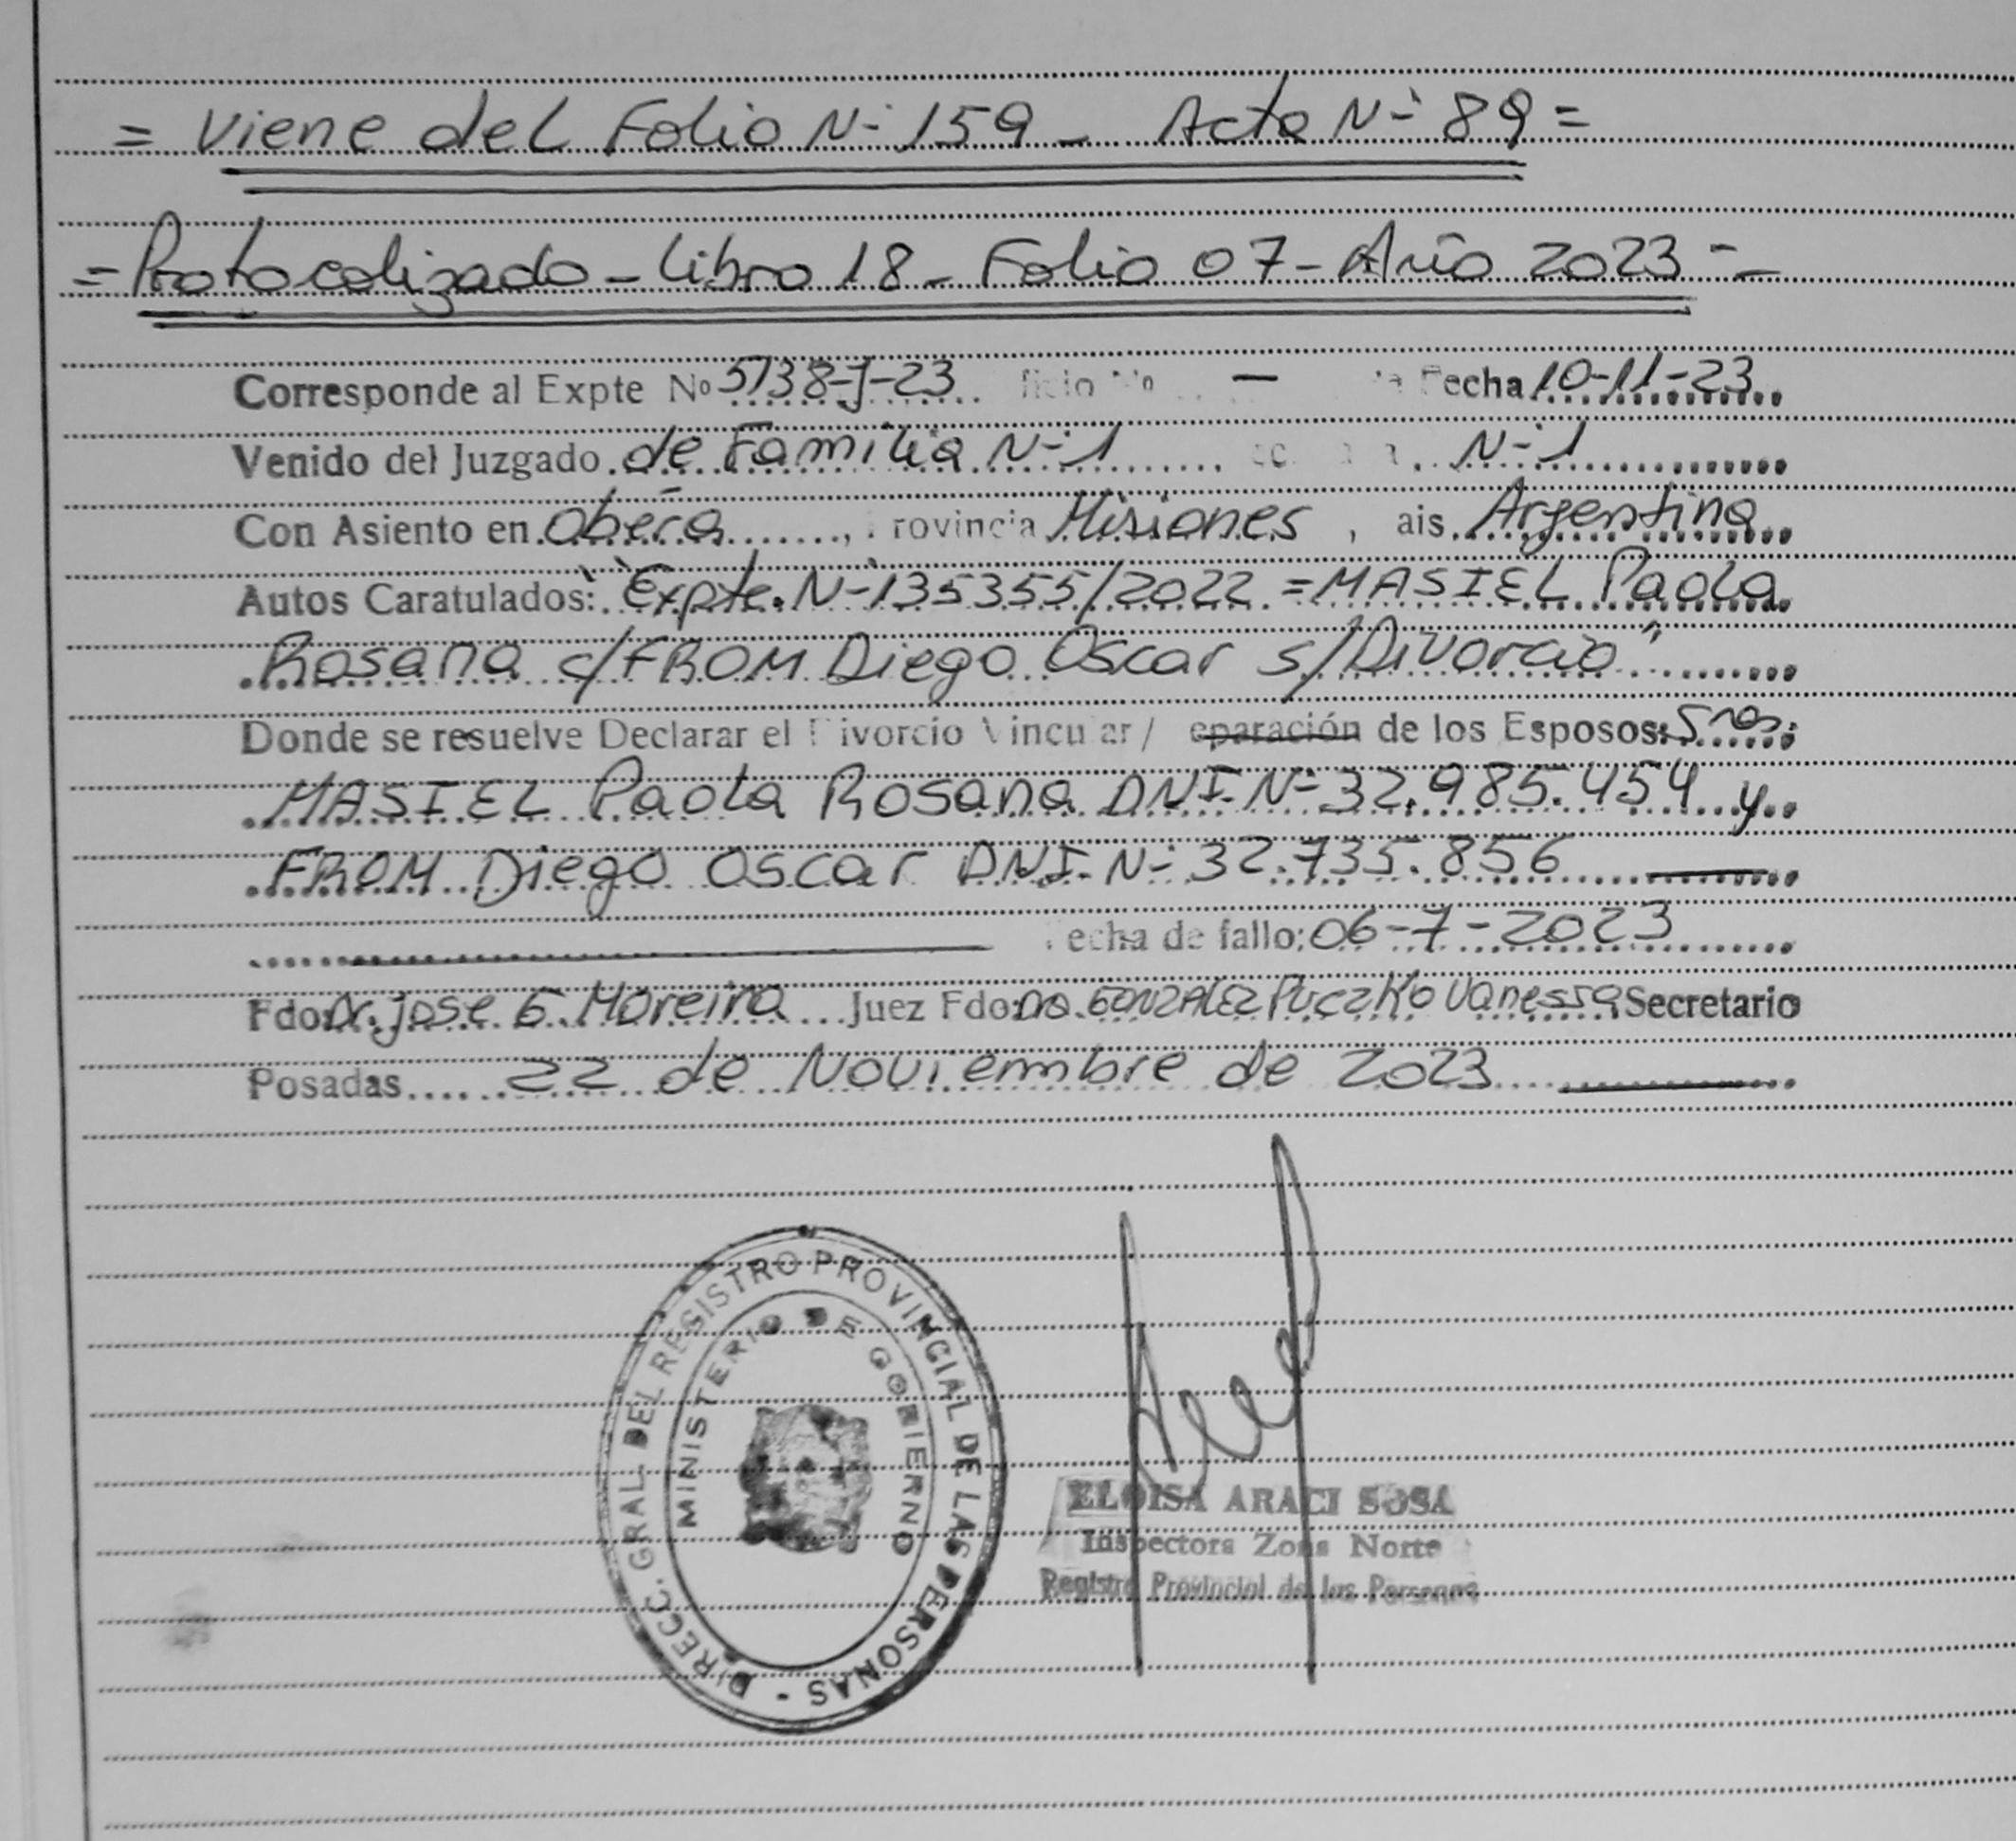 = Viene del Folio N- 159 - Acta N- 89 =
= Protocolizado - Libro 18 - Folio 07 - Año 2023 - -
Corresponde al Expte Nº 5738-J-23 ficio Nº — Fecha 10-11-23
Venido del Juzgado de Familia N-1 N-1
Con Asiento en Oberá, rovincia Misiones, ais Argentina
Autos Caratulados: "Expte. N-135355/2022 = MASIEL Paola
Rosana c/ FROM Diego Oscar s/ Divorcio"
Donde se resuelve Declarar el Divorcio Vincular / eparación de los Esposos: Sres.
MASIEL Paola Rosana DNI. N- 32.985.454 y
FROM Diego Oscar DNI. N- 32.735.856
echa de fallo: 06-7-2023
Fdo: Dr. Jose G. Moreira Juez Fdo: Dra. GONZALEZ PUCZKO Vanessa Secretario
Posadas 22 de Noviembre de 2023
DIRECC. GRAL. DEL REGISTRO PROVINCIAL DE LAS PERSONAS -
MINISTERIO DE GOBIERNO
ELOISA ARACI SOSA
Inspectora Zona Norte
Registro Provincial de las Personas